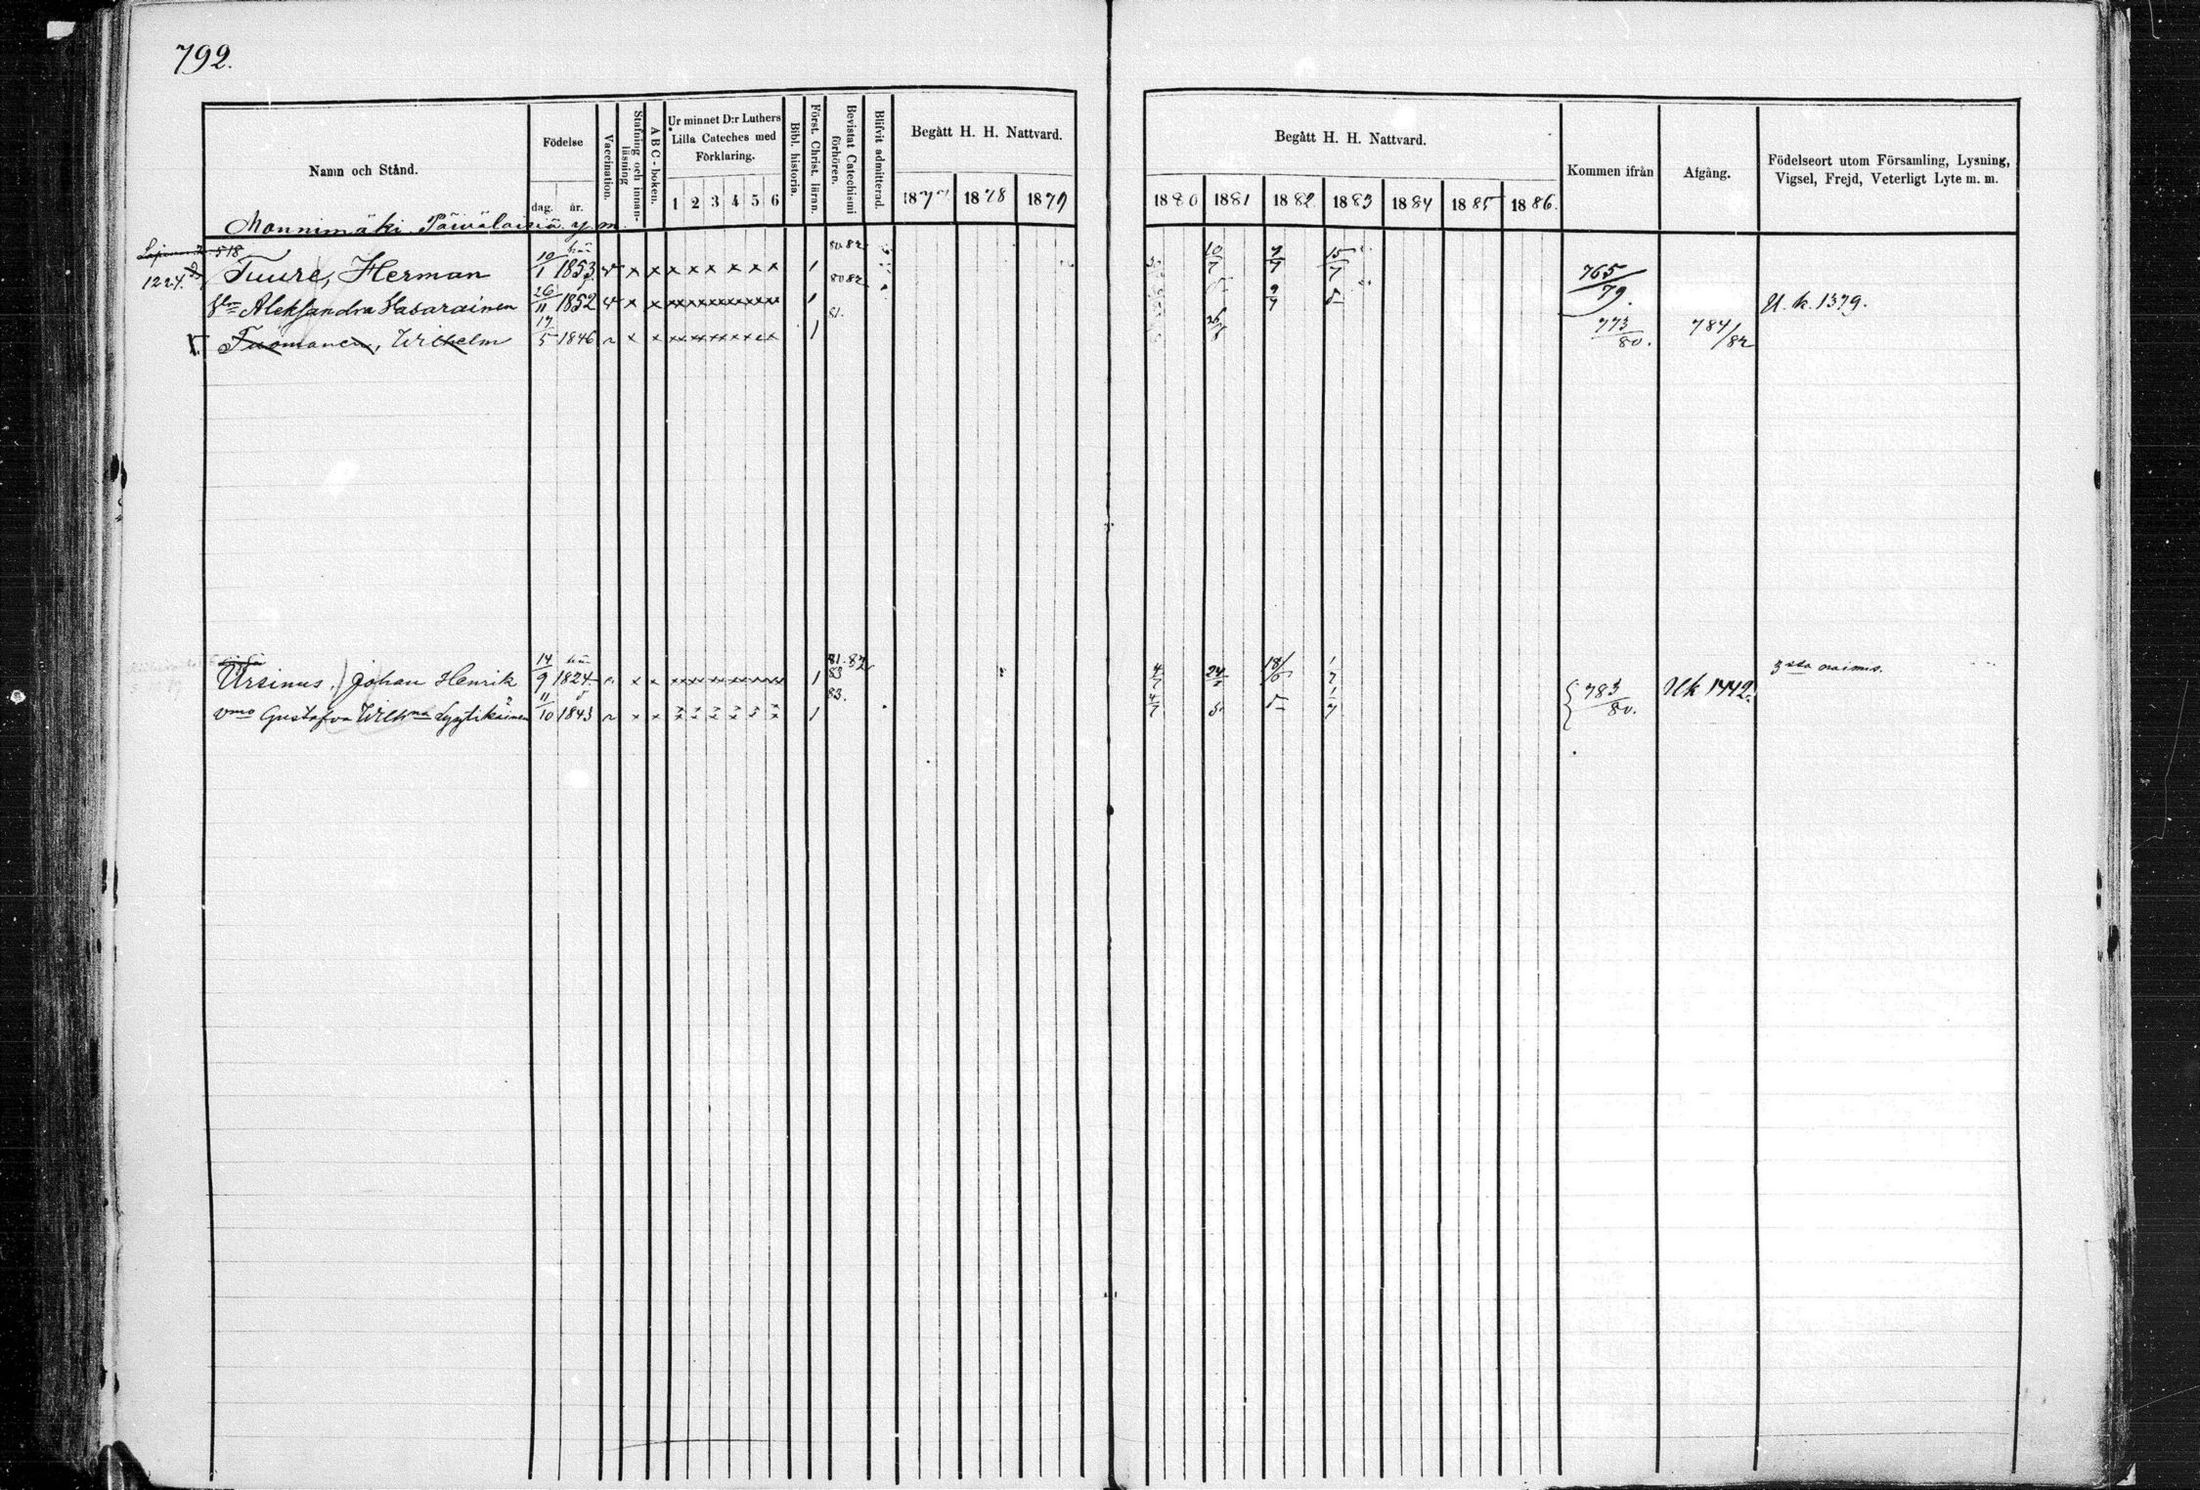 792.
Namn och Stånd.
Födelse
dag. år.
Vaccination.
Stafning och innanläsning
ABC-boken.
Ur minnet D:r Luthers Lilla Cateches med Förklaring.
1 2 3 4 5 6
Bibl. historia.
Först. Christ. läran.
Bevistat Catechismi förhören.
Blifvit admitterad.
Begått H. H. Nattvard.
187 1878 1879
Begått H. H. Nattvard.
1880 1881 1882 1883 1884 1885 1886.
Kommen ifrån
Afgång.
Födelseort utom Församling, Lysning, Vigsel, Frejd, Veterligt Lyte m. m.
Mannimäki Päiväläisiä y. m.
518
1224. Tuure, Herman 10/1 1853 v x x x x x x x x 1 80 82 10/7 9/7 15/7 765/79.
Aleksandra Hasarainen 26/11 1852 v x x 1 80 82 9/7 U. k. 1379.
Tuomanen, Wilhelm 17/5 1846 x x 1 81. 773/80. 784/82
Ursinus, Johan Henrik 14/9 1824 x x 1 81. 82 83 4/7 24/7 18/6 1/7
vmo Gustafva Wilhna Lyytikäinen 11/10 1843 x x 1 83. 4/7 1/7 783/80. Uk 1442.